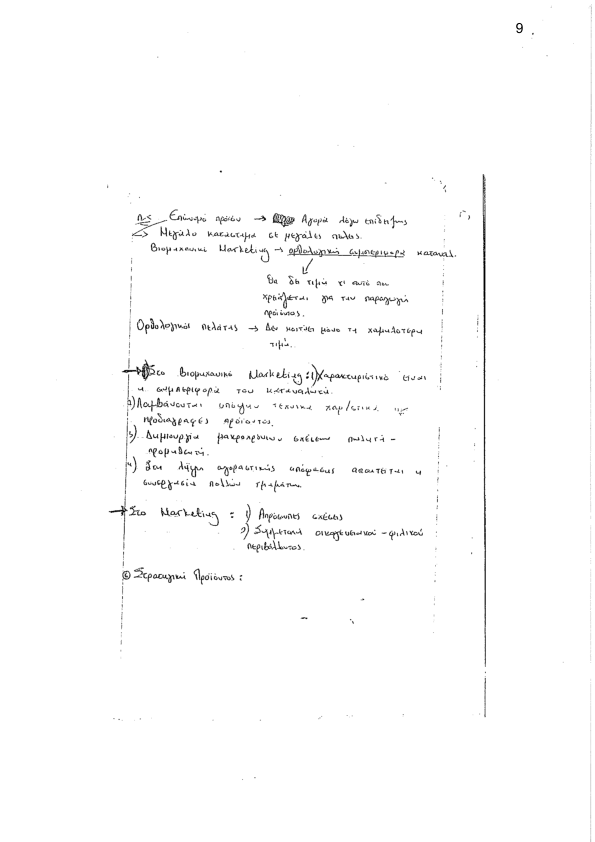 9
π.χ Επώνυμο προϊόν → Αγορά λόγω επίδειξης
→ Μεγάλο κατάστημα σε μεγάλες πόλεις.
Βιομηχανικό Marketing → ορθολογική συμπεριφορά καταναλ.
Θα δει τιμή κι αυτό που
χρειάζεται για την παραγωγή
προϊόντος.
Ορθολογικός πελάτης → Δεν κοιτάει μόνο τη χαμηλότερη
τιμή.
→ Στο Βιομηχανικό Marketing: 1) Χαρακτηριστικό είναι
η συμπεριφορά του καταναλωτή.
2) Λαμβάνονται υπόψην τεχνικά χαρ/στικα
προδιαγραφές προϊόντος.
3) Δημιουργία μακροχρόνιων σχέσεων πελάτη -
προμηθευτή.
4) Στη λήψη αγοραστικής απόφασης απαιτείται η
συνεργασία πολλών τμημάτων.
→ Στο Marketing : 1) Απρόσωπες σχέσεις
2) Συμμετοχή οικογενειακού - φιλικού
περιβάλλοντος.
⑥ Στρατηγική Προϊόντος :